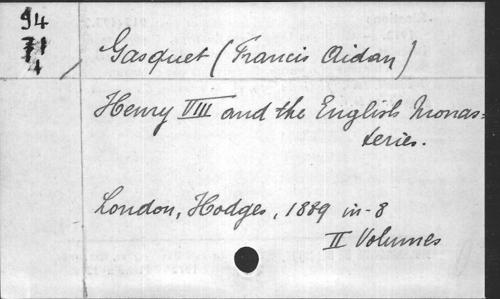 94
Gasquet (Francis Aidan)
Henry VIII and the English Monas=
teries.
London, Hodges, 1889 in-8
II Volumes